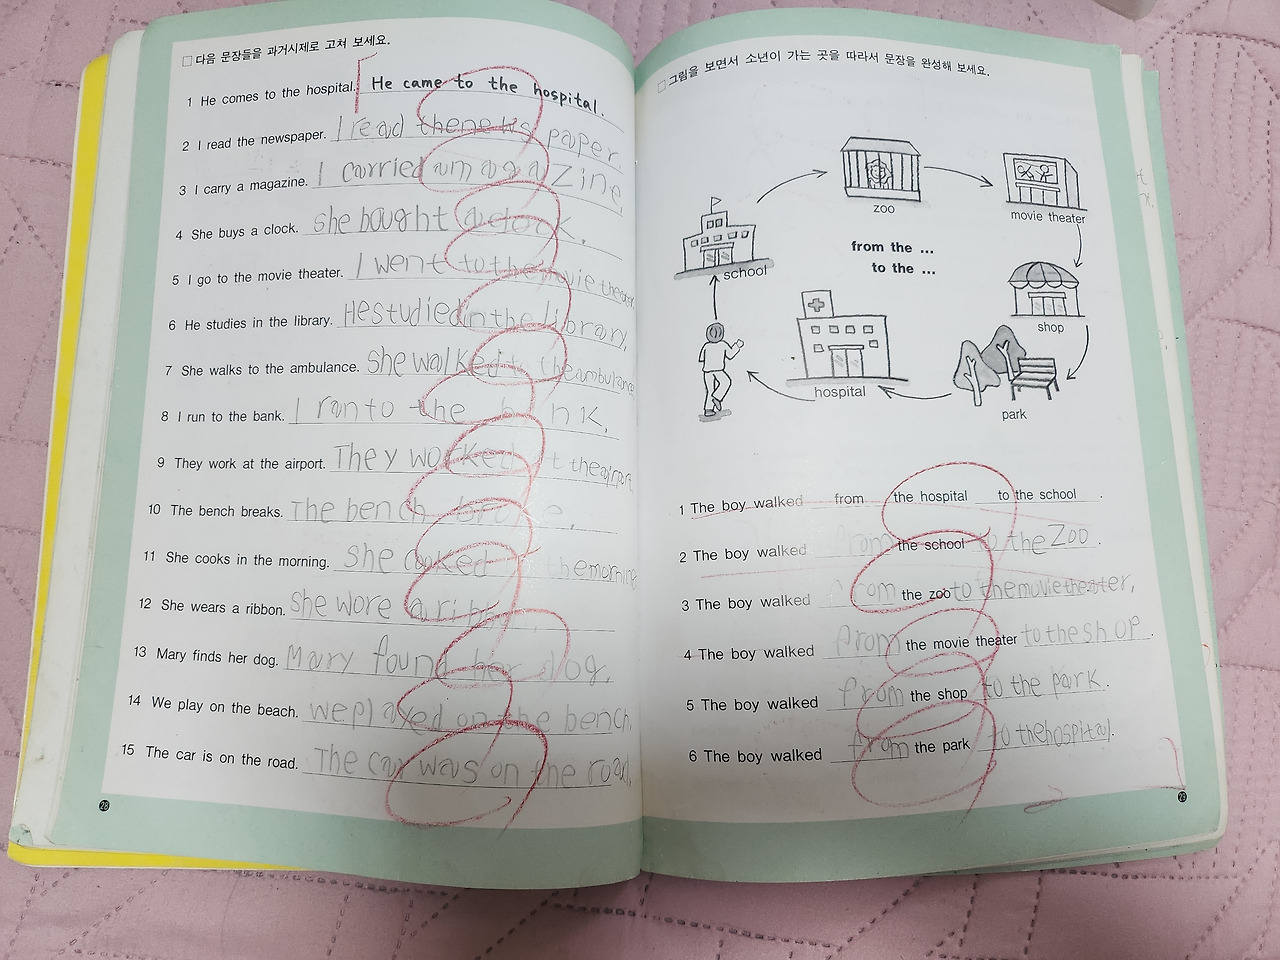 □ 다음 문장들을 과거시제로 고쳐 보세요.
1 He comes to the hospital. He came to the hospital.
2 I read the newspaper. I read thenews paper.
3 I carry a magazine. I carried a magazine,
4 She buys a clock. she bought a clock.
5 I go to the movie theater. I went to the movie theater.
6 He studies in the library. He studied in the library,
7 She walks to the ambulance. she walked to the ambulance
8 I run to the bank. I ran to the bank,
9 They work at the airport. They worked at the airport,
10 The bench breaks. The bench broke.
11 She cooks in the morning. she cooked in the morning
12 She wears a ribbon. she wore a
13 Mary finds her dog. Mary found her dog,
14 We play on the beach. we played on the bench,
15 The car is on the road. The car was on the road,
28
□ 그림을 보면서 소년이 가는 곳을 따라서 문장을 완성해 보세요.
zoo
movie theater
school
from the ...
to the ...
shop
hospital
park
1 The boy walked from the hospital to the school .
2 The boy walked from the school to the Zoo .
3 The boy walked from the zoo to the movie theater,
4 The boy walked from the movie theater to the shop .
5 The boy walked from the shop to the park .
6 The boy walked from the park to the hospital.
29